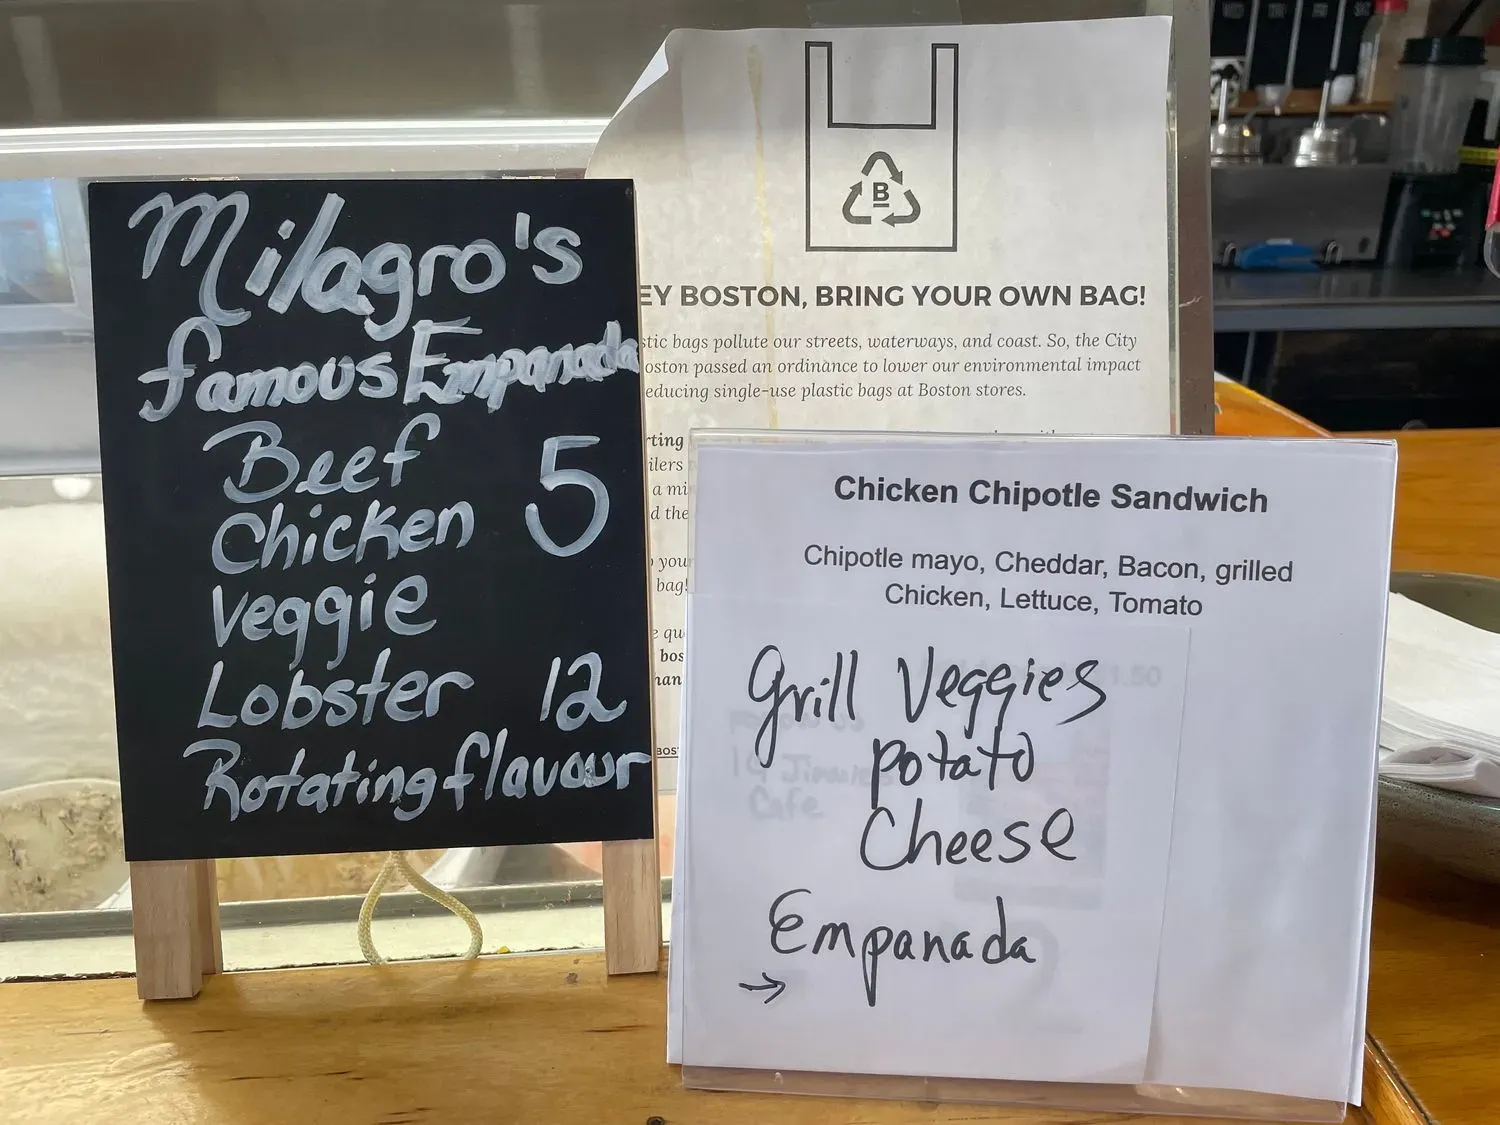 Milagro's
famous Empanada
Beef 5
Chicken
Veggie
Lobster 12
Rotating flavour
B
EY BOSTON, BRING YOUR OWN BAG!
stic bags pollute our streets, waterways, and coast. So, the City
oston passed an ordinance to lower our environmental impact
educing single-use plastic bags at Boston stores.
rting
ilers
a mi
d the
you
bag!
e qu
bos
han
BOS
Chicken Chipotle Sandwich
Chipotle mayo, Cheddar, Bacon, grilled
Chicken, Lettuce, Tomato
Grill Veggies
Potato
Cheese
Empanada
→